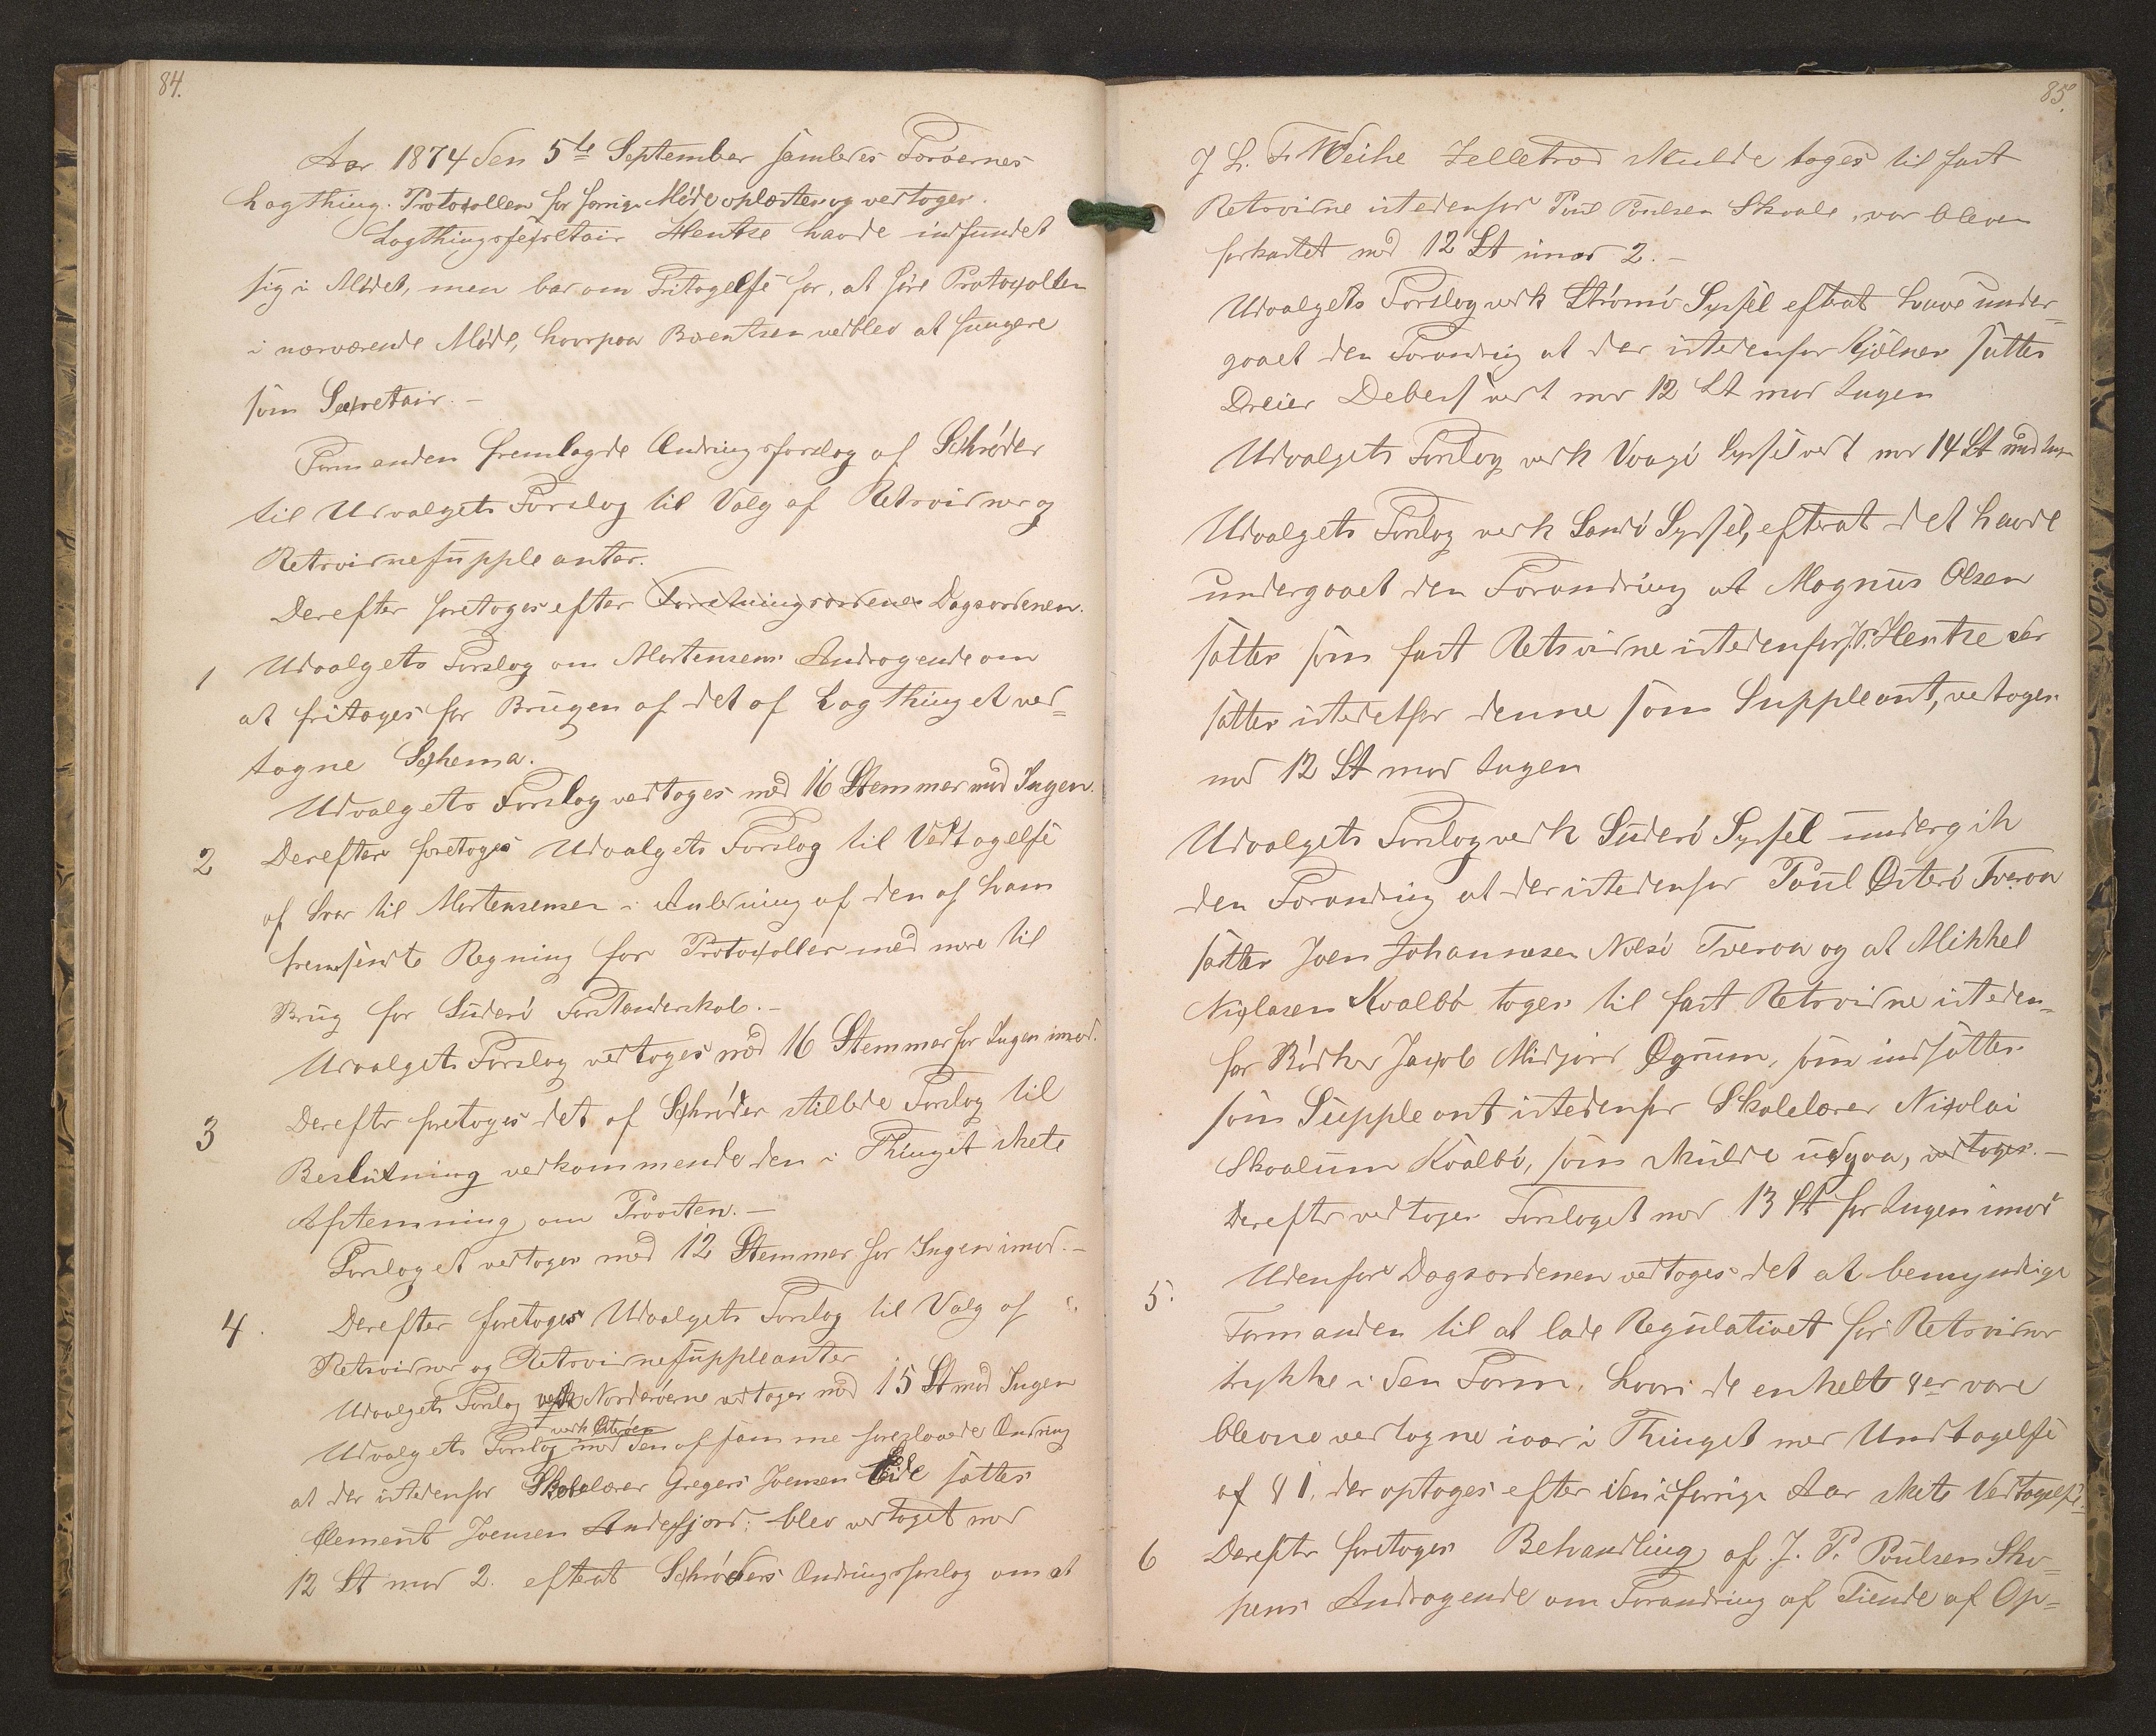 84.
Aar 1874 den 5te September samledes Færøernes
Lagthing. Protocollen for forrige Møde oplæstes og vedtoges.
Lagthingssecretair Hentze havde indfundet
sig i Mødet, men bad om Fritagelse for, at føre Protocollen
i nærværende Møde, hvorpaa Berentsen vedblev at fungere
som Secretair. –
Formanden fremlagde Ændringsforslag af Schrøder
til Udvalgets Forslag til Valg af Retsvidner og
Retsvidnesuppleanter.
Derefter foretoges efter Forretningsordenen Dagsordenen.
1 Udvalgets Forslag om Mortensens Andragende om
at fritages for Brugen af det af Lagthinget ved=
tagne Schema.
Udvalgets Forslag vedtoges med 16 Stemmer mod Ingen.
2 Derefter foretoges Udvalgets Forslag til Vedtagelse
af Svar til Mortensensen i Anledning af den af ham
fremsendte Regning for Protocoller med mere til
Brug for Suderø Forstanderskab. –
Udvalgets Forslag vedtoges med 16 Stemmer for Ingen imod.
3 Derefter foretoges det af Schrøder stillede Forslag til
Beslutning vedkommende den i Thinget skete
Afstemning om Provsten. –
Forslaget vedtoges med 12 Stemmer for Ingen imod. –
4. Derefter foretoges Udvalgets Forslag til Valg af
Retsvidner og Retsvidnesuppleanter
Udvalgets Forslag vedk Norderøerne vedtoges med 15 St mod Ingen
vedk Østerøen
Udvalgets Forslag med den af samme foreslaaede Ændring
at der istedenfor Skolelærer Gregers Joensen Eide sættes
Clement Joensen Andefjord: blev vedtaget med
12 St mod 2. efterat Schrøders Ændringsforslag om at
85.
J. H. F. Weihe Selletrod skulde tages til fast
Retsvidne istedenfor Poul Poulsen Skaale, var bleven
forkastet med 12 St imod 2. –
Udvalgets Forslag vedk Strømø Syssel efterat have under=
gaaet den Forandring at der istedenfor Kjølner sættes
Dreier Debess vedt med 12 St mod Ingen
Udvalgets Forslag vedk Vaagø Syssel vedt med 14 St mod Ingen
Udvalgets Forslag vedk Sandø Syssel, efterat det havde
undergaaet den Forandring at Magnus Olsen
sættes som fast Retsvidne istedenfor J. P. Hentze der
sættes istedetfor denne som Suppleant, vedtoges
med 12 St mod Ingen
Udvalgets Forslag vedk Suderø Syssel undergik
den Forandring at der istedenfor Poul Østerø Tveraa
sættes Joen Johannesen Nolsø Tveraa og at Mikkel
Niclasen Kvalbø tages til fast Retsvidne isteden=
for Bødker Jacob Midjord Øgrum, som indsættes
som Suppleant istedenfor Skolelærer Nicolai
Skaalum Kvalbø, som skulde udgaa, vedtoges. –
Derefter vedtoges Forslaget med 13 St for Ingen imod
5. Udenfor Dagsordenen vedtoges det at bemyndige
Formanden til at lade Regulativet for Retsvidner
trykke i den Form, hvori de enkelte §er vare
blevne vedtagne iaar i Thinget med Undtagelse
af § 1. der optoges efter den i forrige Aar skete Vedtagelse.
6 Derefter foretoges Behandling af J. P. Poulsen Sko=
pens Andragende om Forandring af Tiende af Op=